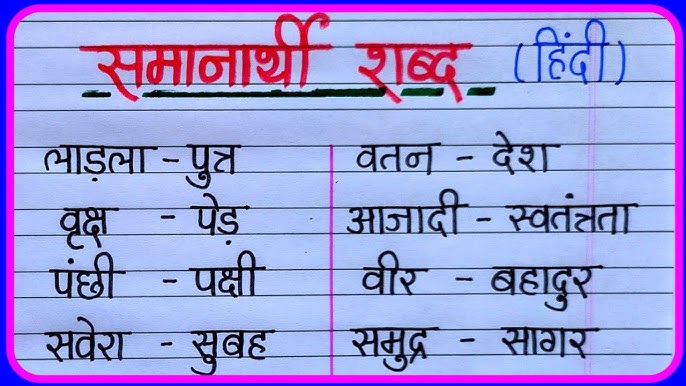 समानार्थी शब्द (हिंदी)
लाड़ला - पुत्र
वृक्ष - पेड़
पंछी - पक्षी
सवेरा - सुबह
वतन - देश
आजादी - स्वतंत्रता
वीर - बहादुर
समुद्र - सागर